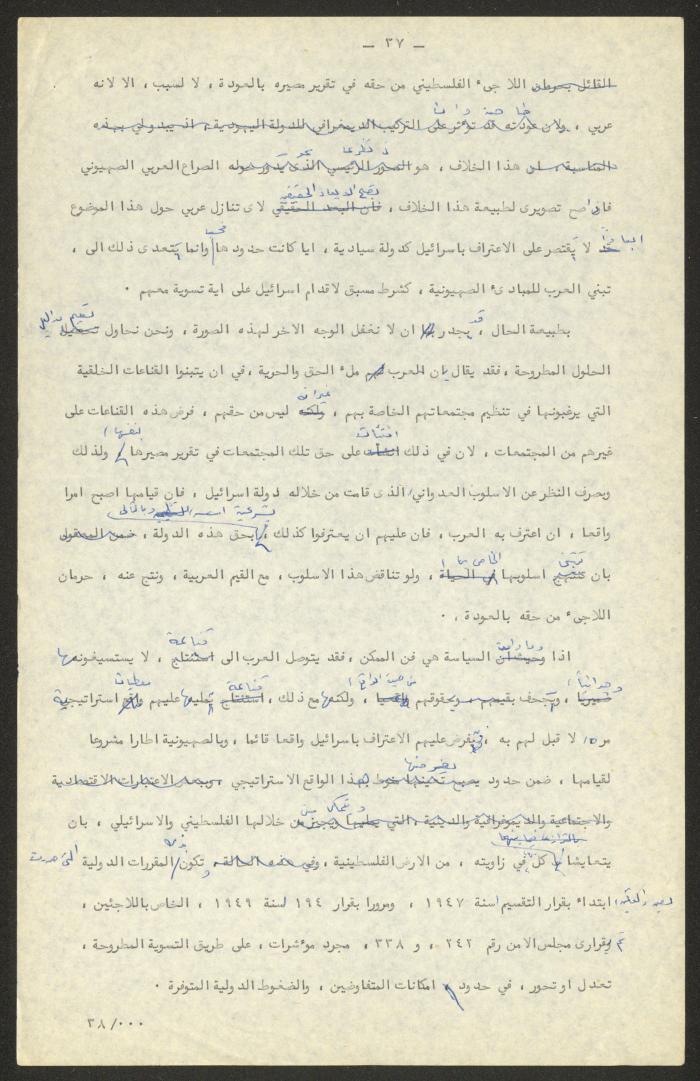 — ٣٧ —
القائل بحرمان اللاجىء الفلسطيني من حقه في تقرير مصيره بالعودة ، لا لسبب ، الا لانه
عربي ، ولان عودته قد تؤثر على التركيب الديمغرافي للدولة اليهودية ، اذ يبدو لي بهذه
المناسبة ، ان هذا الخلاف ، هو المحور الرئيسي الذى يدور حوله الصراع العربي الصهيوني
فان صح تصويرى لطبيعة هذا الخلاف ، فان البعد الحقيقي لاى تنازل عربي حول هذا الموضوع
لا يقتصر على الاعتراف باسرائيل كدولة سيادية ، ايا كانت حدودها وانما يتعدى ذلك الى ،
تبني العرب للمبادىء الصهيونية ، كشرط مسبق لاقدام اسرائيل على اية تسوية معهم .
بطبيعة الحال ، قد يجدر ان لا نغفل الوجه الاخر لهذه الصورة ، ونحن نحاول تقييم
الحلول المطروحة ، فقد يقال بان للعرب ملء الحق والحرية ، في ان يتبنوا القناعات الخلقية
التي يرغبونها في تنظيم مجتمعاتهم الخاصة بهم ، غير انه ليس من حقهم ، فرض هذه القناعات على
غيرهم من المجتمعات ، لان في ذلك افتئات على حق تلك المجتمعات في تقرير مصيرها بنفسها ولذلك
وبصرف النظر عن الاسلوب العدواني الذى قامت من خلاله دولة اسرائيل ، فان قيامها اصبح امرا
واقعا ، ان اعترف به العرب ، فان عليهم ان يعترفوا كذلك ، بحق هذه الدولة ، ضمن المعقول
بان تنتهج اسلوبها الخاص بها في الحياة ، ولو تناقض هذا الاسلوب ، مع القيم العربية ، ونتج عنه ، حرمان
اللاجىء من حقه بالعودة . .
اذا وما دامت السياسة هي فن الممكن ، فقد يتوصل العرب الى قناعة استنتاج ، لا يستسيغونها
وجدانياً ، ويجحف بقيمهم ، وبحقوقهم ، ولكنها مع ذلك ، قناعة تمليها عليهم معطيات استراتيجية
لا قبل لهم به ، فيفرض عليهم الاعتراف باسرائيل واقعا قائما ، وبالصهيونية اطارا مشروعا
لقيامها ، ضمن حدود يصبح تعيينها خوط بهذا الواقع الاستراتيجي ، وببعد الاعتبارات الاقتصادية
والاجتماعية والديموغرافية والدينية ، التي يمليها ويجيز من خلالها الفلسطيني والاسرائيلي ، بان
يتعايشا كل في زاويته ، من الارض الفلسطينية ، وفي هذه الحالة ، تكون المقررات الدولية التي صدرت
ابتداء بقرار التقسيم لسنة ١٩٤٧ ، ومرورا بقرار ١٩٤ لسنة ١٩٤٩ ، الخاص باللاجئين ،
بقرارى مجلس الامن رقم ٢٤٢ ، و ٣٣٨ ، مجرد مؤشرات ، على طريق التسوية المطروحة ،
تعدل او تحور ، في حدود امكانات المتفاوضين ، والضغوط الدولية المتوفرة .
٣٨/٠٠٠